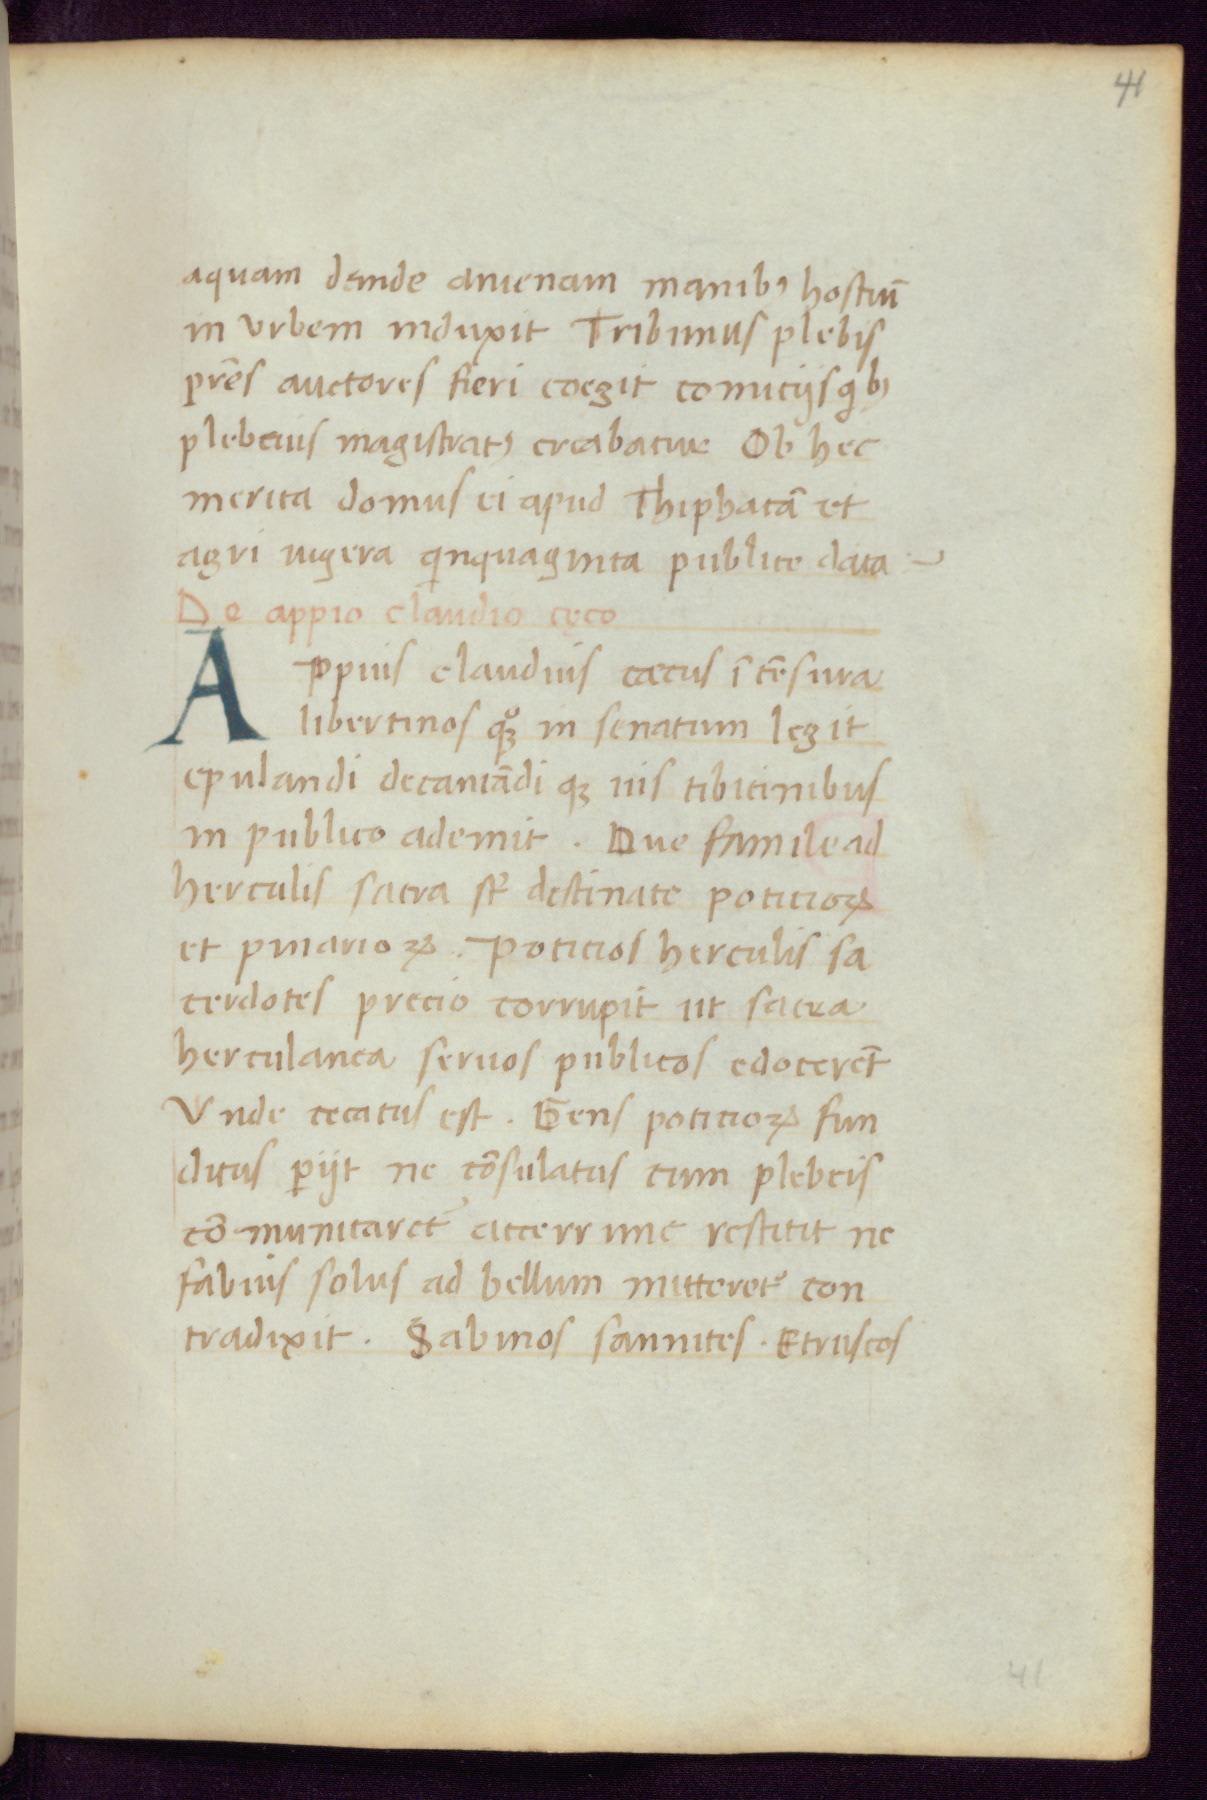 41
aquam deinde anienam manibꝰ hostiũ
in vrbem induxit Tribunus plebis
pr̃es auctores fieri coegit comiciisq̃ bꝰ
plebeius magistratꝰ creabatur Ob hec
merita domus ei apud Thiphatã et
agri iugera qinquaginta publice data
De appio claudio cęco
Appius claudius cæcus ĩ cẽsura
libertinos qꝫ̊ in senatum legit
epulandi decantãdi qꝫ ius tibicinibus
in publico ademit . Due famile ad
herculis sacra st̃ destinate poticioꝝ
et pinarioꝝ . Poticios herculis sa
cerdotes precio corrupit ut sacra
herculanea seruos publicos edocerẽt
Vnde cecatus est . Gens poticioꝝ fun
ditus ꝑiit ne cõsulatus cum plebeis
cõmunicaret᷑ accerrime restitit ne
fabius solus ad bellum mitteret᷑ con
tradixit . Sabinos samnites . Etruscos
41